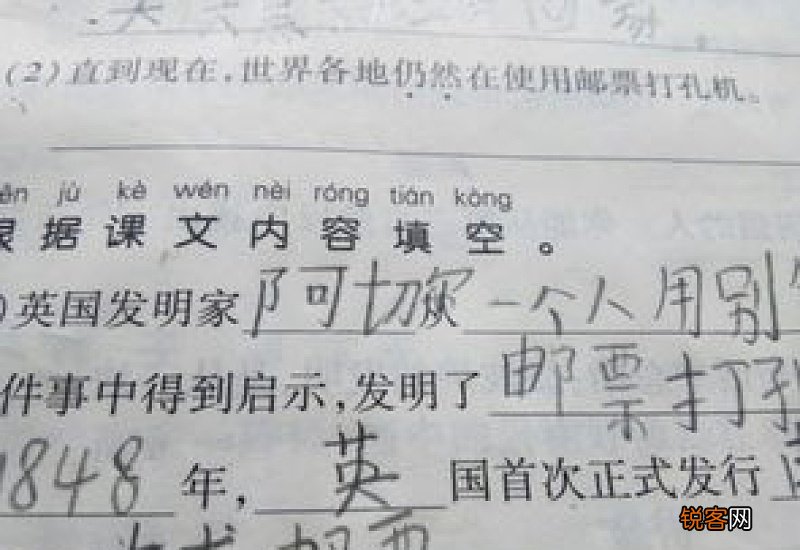 (2)直到现在,世界各地仍然在使用邮票打孔机。
jù kè wén nèi róng tián kòng
据课文内容填空。
)英国发明家阿切 一个人用别
件事中得到启示,发明了邮票打孔
1848年,英国首次正式发行
邮票
锐客网